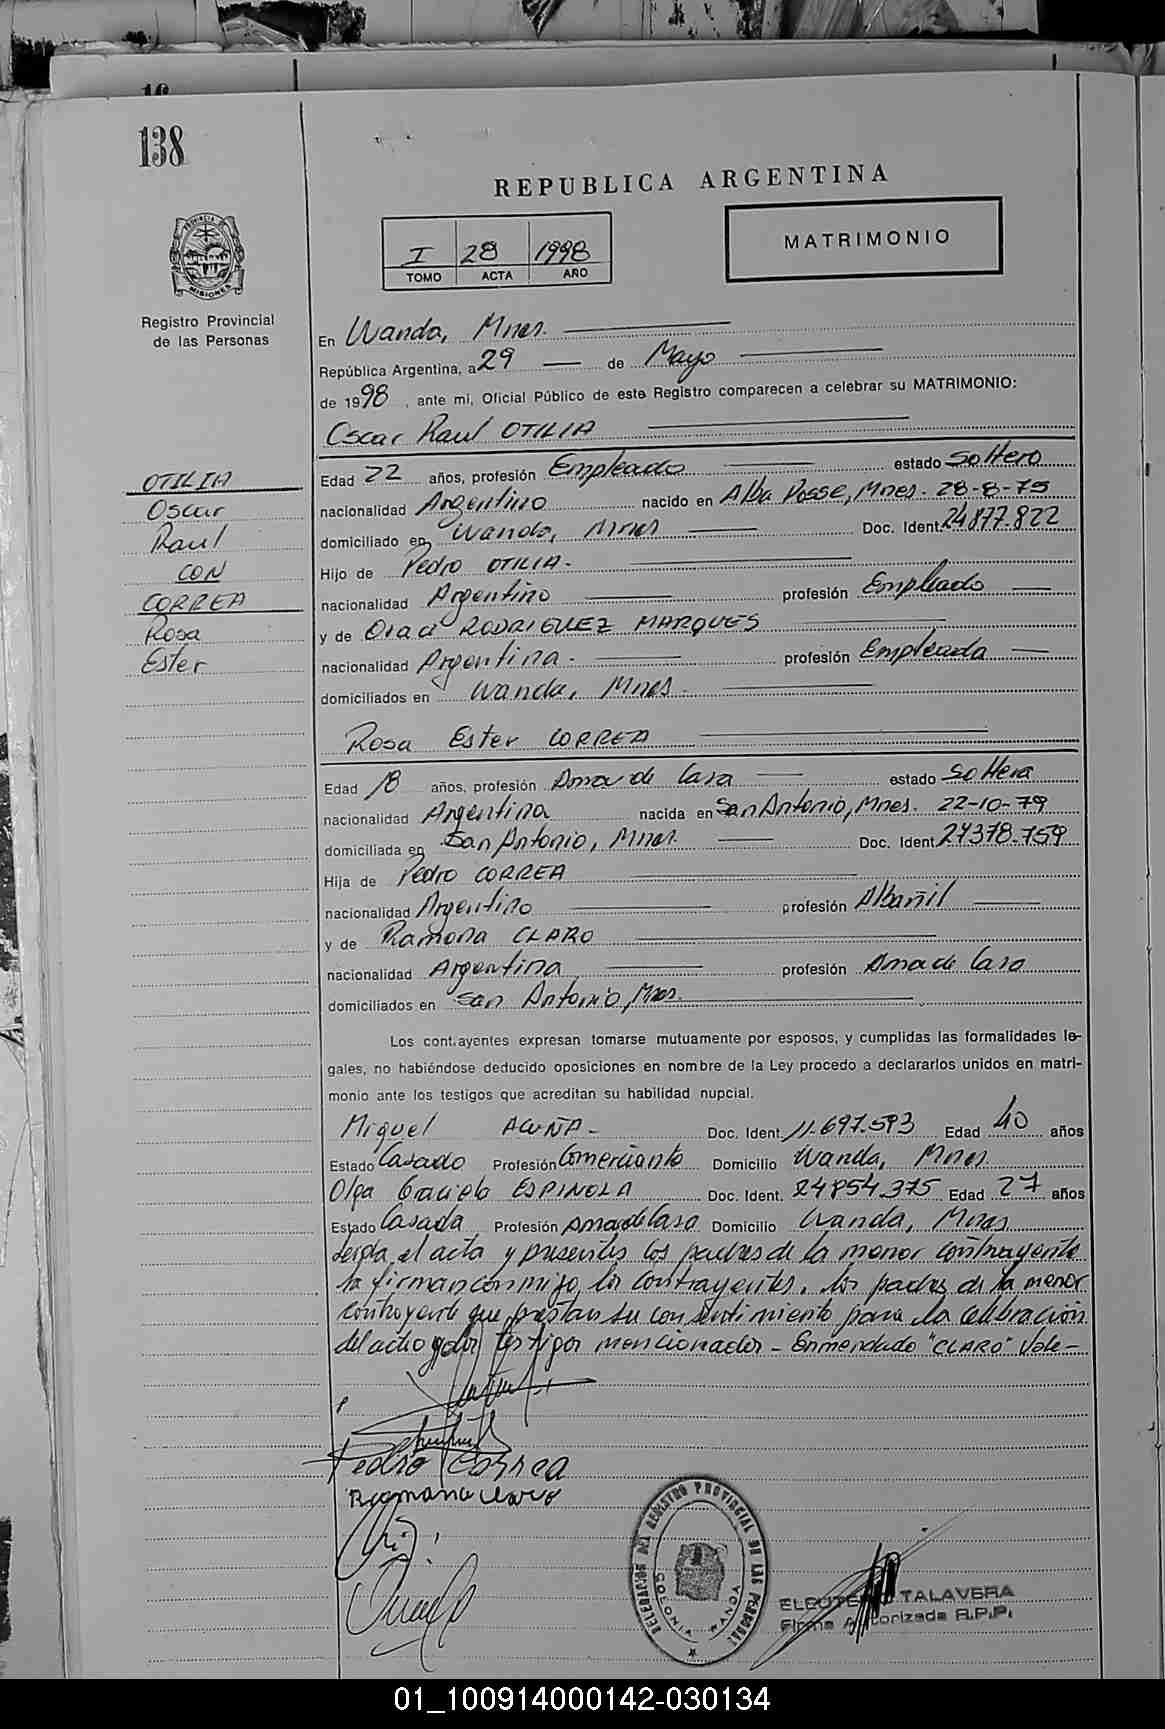 138
REPUBLICA ARGENTINA
I 28 1998
TOMO ACTA AÑO
MATRIMONIO
PROVINCIA DE
MISIONES
Registro Provincial
de las Personas
En Wanda, Mnes.
República Argentina, a 29 de Mayo
de 1998, ante mi, Oficial Público de este Registro comparecen a celebrar su MATRIMONIO:
Oscar Raul OTILIA
OTILIA
Oscar
Raul
CON
CORREA
Rosa
Ester
Edad 22 años, profesión Empleado estado Soltero
nacionalidad Argentino nacido en Alba Posse, Mnes. 28-8-75
domiciliado en Wanda, Mnes Doc. Ident. 24877.822
Hijo de Pedro OTILIA.
nacionalidad Argentino profesión Empleado
y de RODRIGUEZ MARQUES
nacionalidad Argentina. profesión Empleada
domiciliados en Wanda, Mnes.
Rosa Ester CORREA
Edad 18 años, profesión Ama de Casa estado Soltera
nacionalidad Argentina nacida en San Antonio, Mnes. 22-10-79
domiciliada en San Antonio, Mnes. Doc. Ident. 27378.759
Hija de Pedro CORREA
nacionalidad Argentino profesión Albañil
y de Ramona CLARO
nacionalidad Argentina profesión Ama de Casa
domiciliados en San Antonio, Mnes.
Los contrayentes expresan tomarse mutuamente por esposos, y cumplidas las formalidades le-
gales, no habiéndose deducido oposiciones en nombre de la Ley procedo a declararlos unidos en matri-
monio ante los testigos que acreditan su habilidad nupcial.
Miguel ACUÑA- Doc. Ident. 11.697.593 Edad 40 años
Estado Casado Profesión Comerciante Domicilio Wanda, Mnes
Olga Graciela ESPINOLA Doc. Ident. 24854.375 Edad 27 años
Estado Casada Profesión Ama de Casa Domicilio Wanda, Mnes
Leida el acta y presentes los padres de la menor contrayente
la firman conmigo, los contrayentes, los padres de la menor
contrayente que prestan su consentimiento para la celebración
del acto y los testigos mencionados - Enmendado "CLARO" Vale-
Pedro Correa
Ramona Claro
DELEGACION DEL REGISTRO PROVINCIAL DE LAS PERSONAS
COLONIA WANDA
ELEUTERIO TALAVERA
Firma Autorizada R.P.P.
01_100914000142-030134